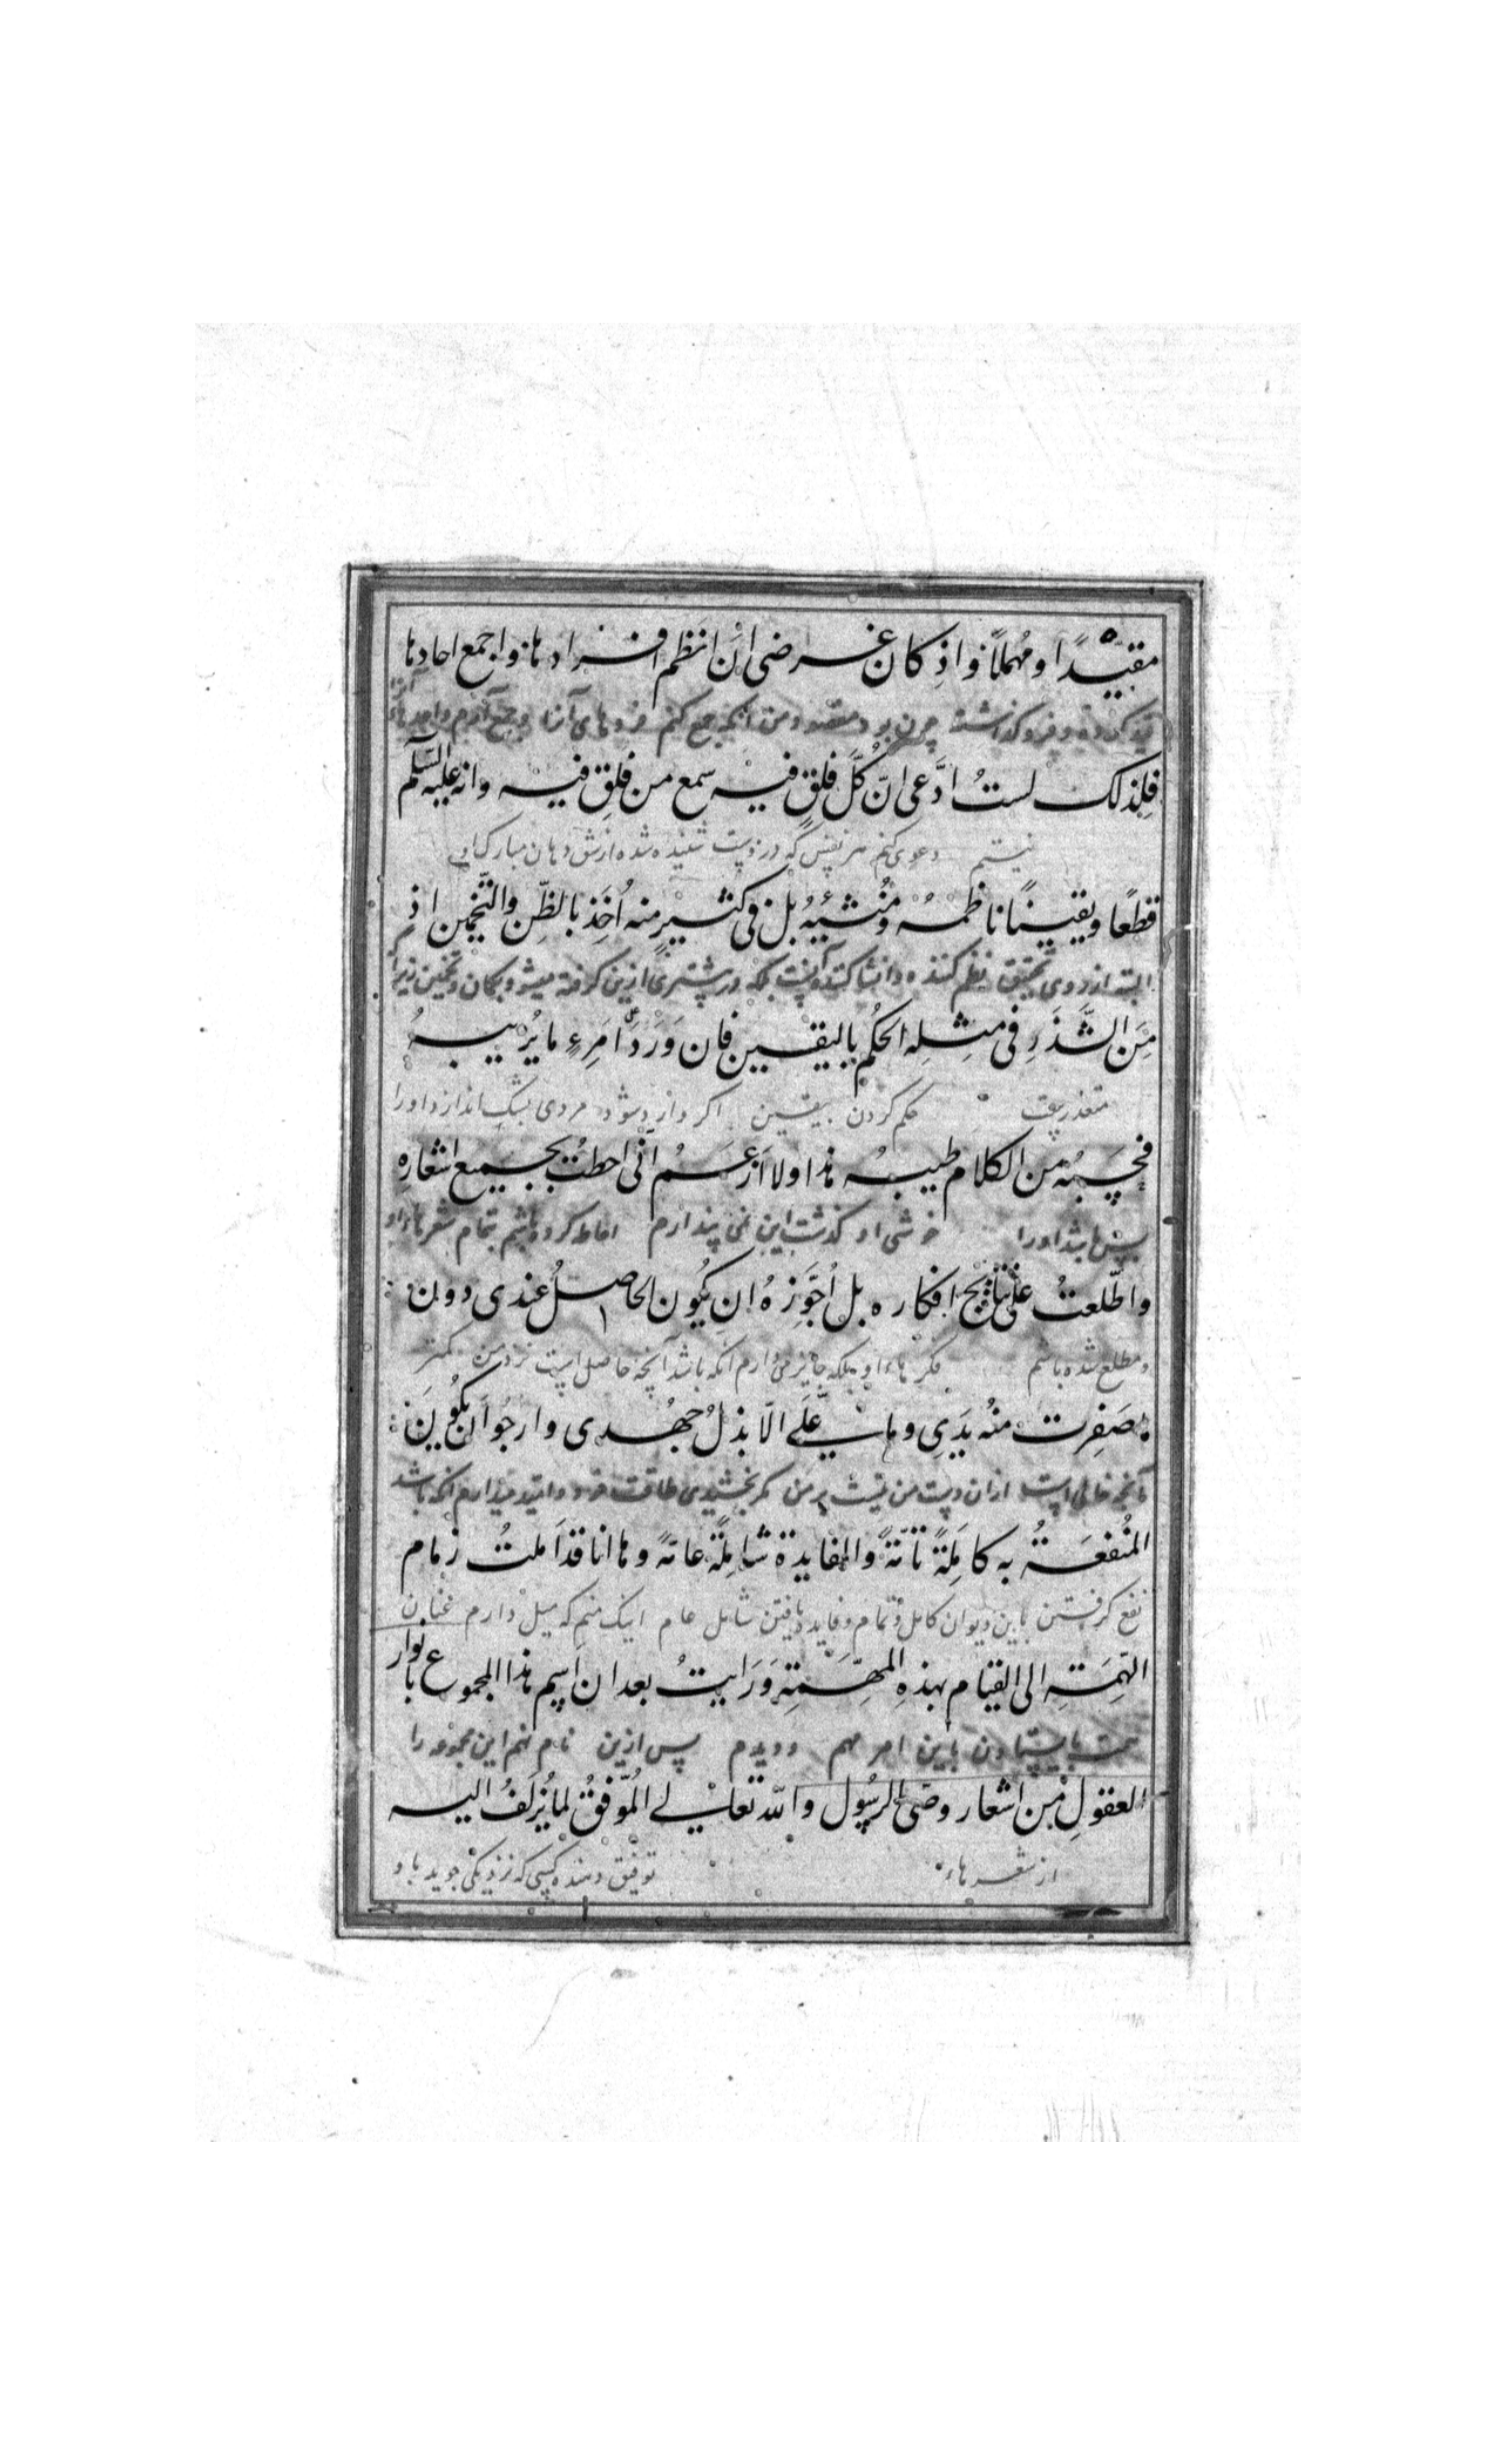 مقيّدًا ومُهملًا واذِ كان غرضى انَ انَظم افرادها واجمع احادها
قید کرده و فرو گذاشته چون بود مقصود من آنکه جمع کنم فردهای آنرا و جمع آورم واحدهاء آنرا
فلِذلك لستُ ادَّعى انّ كُلَّ فلقٍ فيه سمع من فلِق فيه وانه عليه السّلم
نیستم دعوی کنم هر نفس که دروست شنیده شده از شق دهان مبارک
قطعًا ويقينًا ناظمهُ ومُنشئيهُ بل فى كثيرٍ منه اُخِذَ بالظّن والتّخمين اذ
البته از روی تحقیق نظم کننده و انشا کننده آنست بلکه در بیشتری ازین گرفته میشود بکمان و تخمین زیرا که
مِنَ الشَّذَرِ فى مثِلِه الحُكم باليقين فان وَرَدَ علىَ امَرِءٍ ما يُريبهُ
حکم کردن بیقین اکر وارد شود مردی بشک اندازد اورا
فحَسبُه من الكلام طيبهُ هذا ولا ازَعَمُ اَنّى احطتُ بجميع اشعارِه
پس باشد اورا خوشی او گذشت این نمی پندارم احاطه کرده باشم بتمام شعرهاء او
واطّلعتُ على نتايج افكاره بل اُجَوِّزهُ ان يَكُون الحاصلُ عندى دون
و مطلع شده باشم فکرهاء او بلکه جایز میدارم آنکه باشد آنچه حاصل است نزد من کمتر
ما صَفِرت منُه يَدِى وما علَىَّ الّا بذلُ جهُدى وارجُوا اَن يكُونَ
آنچه خالی است ازان دست من نیست بر من مکر بخشیدن طاقت خود و امید میدارم آنکه باشد
المُنفعَةُ به كامِلَةً تامّةً والفايدة شامِلَةً عامةً وها انا قد اَملتُ زمام
نفع کرفتن باین دیوان کامل و تمام و فایده یافتن شامل عام اینک منم که میل دارم عنان
الهِمَّةِ الى القيام بهذِهِ المهِمَّةِ وَرَايتُ بعد ان اسِم هذا المجموع بانوار
همت بایستادن باین امر مهم و دیدم پس ازین نام نهم این مجموعه را
العقولِ من اشعار وصّى الرسُول واللّه تعالى المُوَّفقُ لما يُزلَفُ اليه
از شعرهاء توفیق دهنده کسی که نزدیکی جوید باو